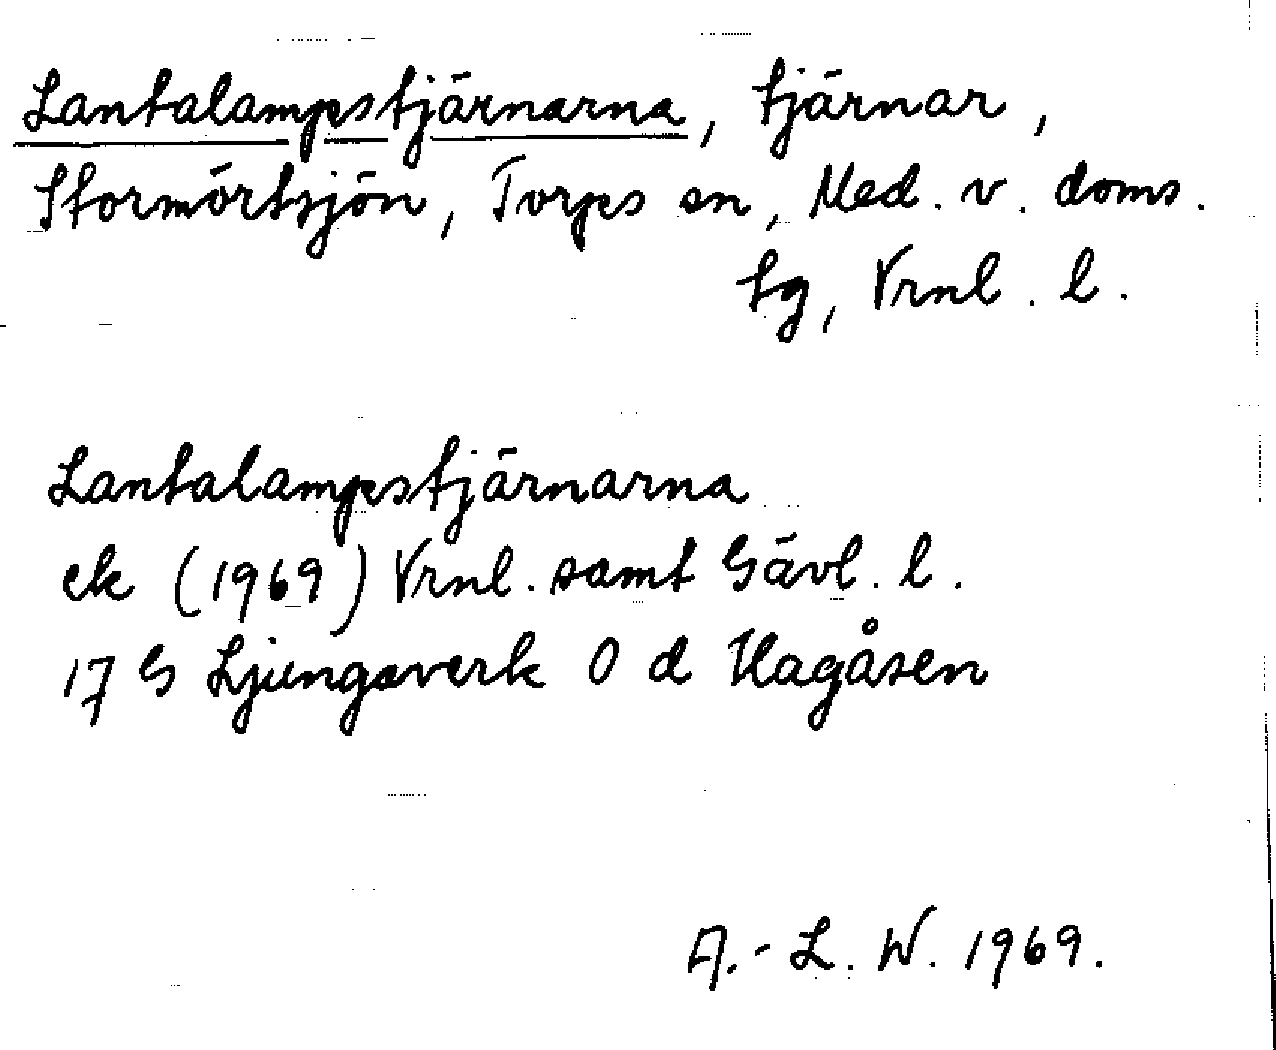 Lantalampstjärnarna, tjärnar,
Stormörtsjön, Torps sn, Med. v. doms.
tg, Vrnl. l.
Lantalampstjärnarna
ek (1969) Vrnl. samt Gävl. l.
17 G Ljungaverk O d Hagåsen
A.-L. W. 1969.